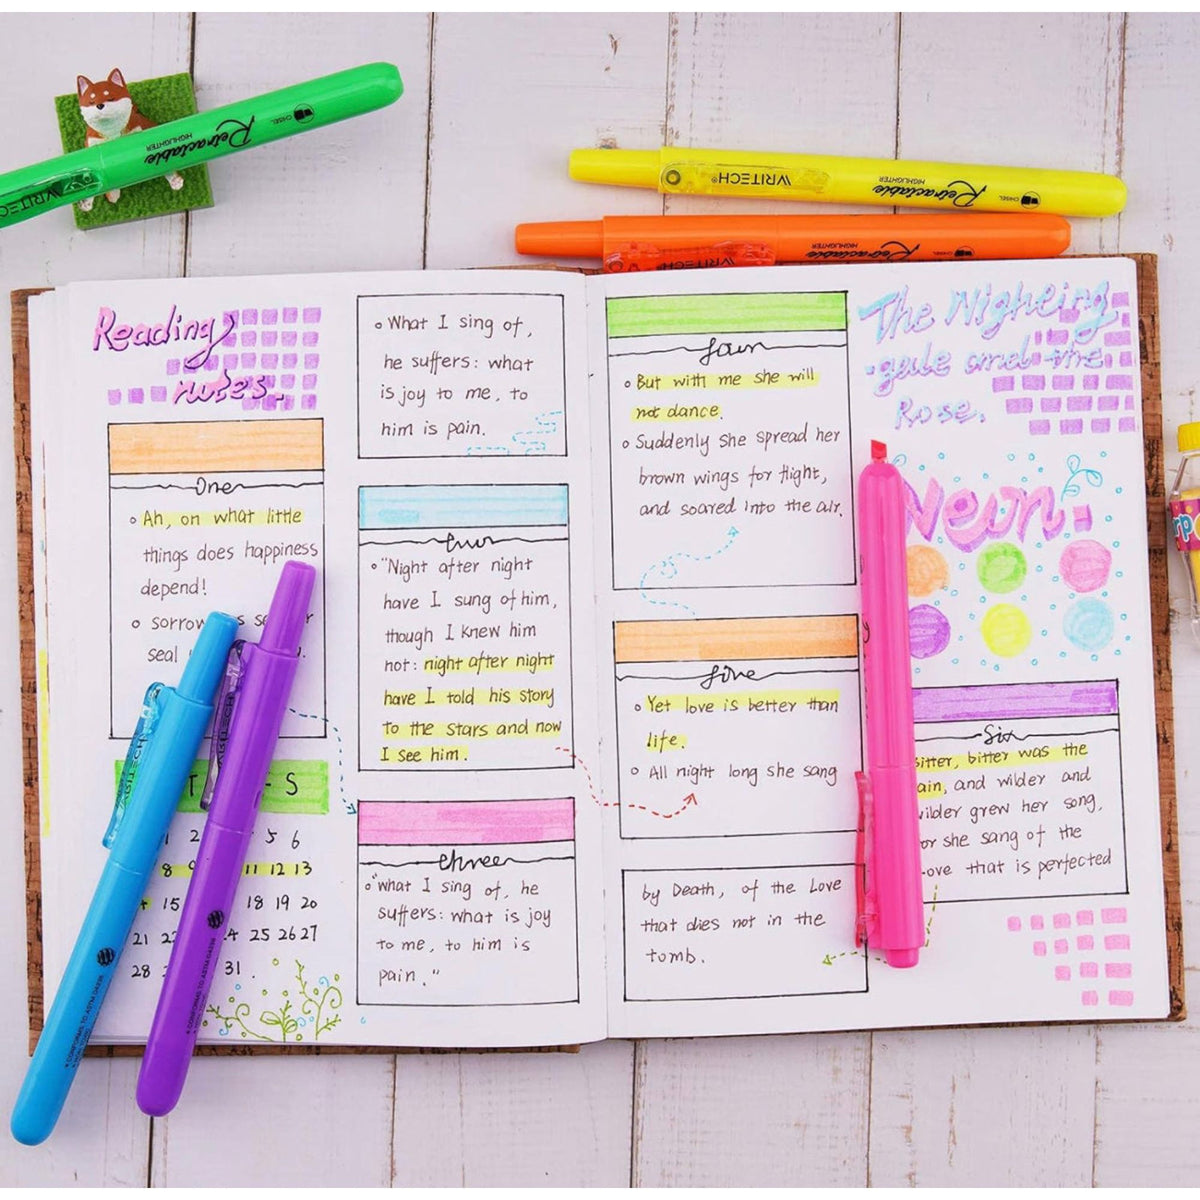 Retractable
HIGHLIGHTER
CHISEL
WRITECH®
Retractable
HIGHLIGHTER
CHISEL
WRITECH
Retractable
HIGHLIGHTER
CHISEL
Reading
notes.
One
Ah, on what little
things does happiness
depend!
sorrow
seal
T F S
1 2 5 6
8 11 12 13
15 18 19 20
21 25 26 27
28 31
What I sing of,
he suffers: what
is joy to me, to
him is pain.
two
"Night after night
have I sung of him,
though I knew him
not: night after night
have I told his story
to the stars and now
I see him.
three
"what I sing of, he
suffers: what is joy
to me, to him is
pain."
four
But with me she will
not dance.
Suddenly she spread her
brown wings for flight,
and soared into the air.
five
Yet love is better than
life.
All night long she sang
by Death, of the Love
that dies not in the
tomb.
The Nigheing
-gale and the
Rose.
Neon.
Six
bitter was the
and wilder and
grew her song,
she sang of the
that is perfected
WRITECH
WRITECH
CONFORMS TO ASTM D4236
CONFORMS TO ASTM D4236